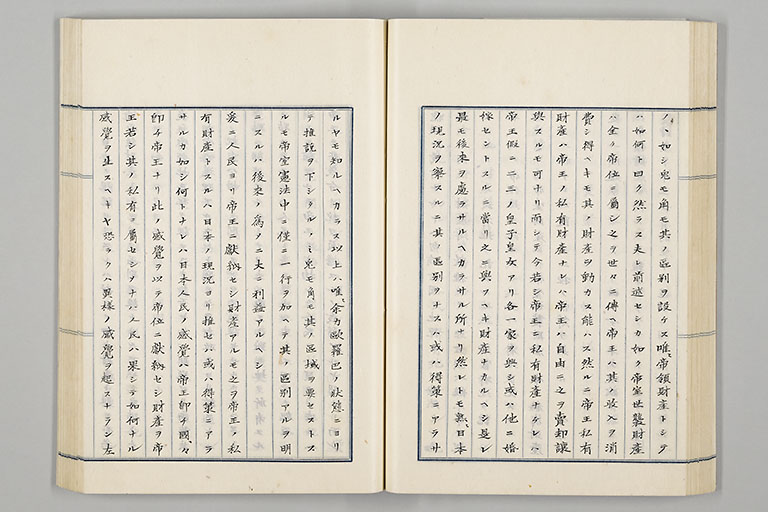 ノヽ如シ兎モ角モ其ノ區別ヲ設ケス唯帝領財産トシテ
ハ如何ト曰ク然ラス夫レ前述セシカ如ク帝室世襲財産
ハ全ク帝位ニ屬シ之ヲ世々ニ傳ヘ帝王ハ其ノ收入ヲ消
費シ得ヘキモ其ノ財産ヲ動カス能ハス然ルニ帝王私有
財産ハ帝王ノ私有財産ナレハ帝王ハ自由ニ之ヲ賣却讓
與スルモ可ナリ而シテ今若シ帝王ニ私有財産ナケレハ
帝王假ニ二三ノ皇子皇女アリ各一家ヲ興シ或ハ他ニ婚
嫁セントスルニ當リ之ニ與スヘキ財産ナカルヘシ是レ
最モ後來ヲ慮ラサルヘカラサル所ナリ然レトモ熟日本
ノ現況ヲ察スルニ其ノ區別ヲナスハ或ハ得策ニアラサ
ルヤモ知ルヘカラス以上ハ唯余カ歐羅巴ノ狀態ニヨリ
テ推說ヲ下シタルノミ兎モ角モ其ノ區域ヲ要セストス
ルモ帝室憲法中ニ僅ニ一行ヲ加ヘテ其ノ區別アルヲ明
ニスルハ後來ノ爲メニ大ニ利益アルヘシ
爰ニ人民ヨリ帝王ニ獻納セシ財産アルモ之ヲ帝王ノ私
有財産トスルハ日本ノ現況ヨリ推セハ或ハ得策ニアラ
サルカ如シ何トナレハ日本人民ノ感覺ハ帝王卽チ國々
卽チ帝王ナリ此ノ感覺ヲ以テ帝位ニ獻納セシ財産ヲ帝
王若シ其ノ私有ニ屬セシメナハ人民ハ果シテ如何ナル
感覺ヲ生スヘキヤ恐ラクハ異樣ノ感覺ヲ起スナラン左